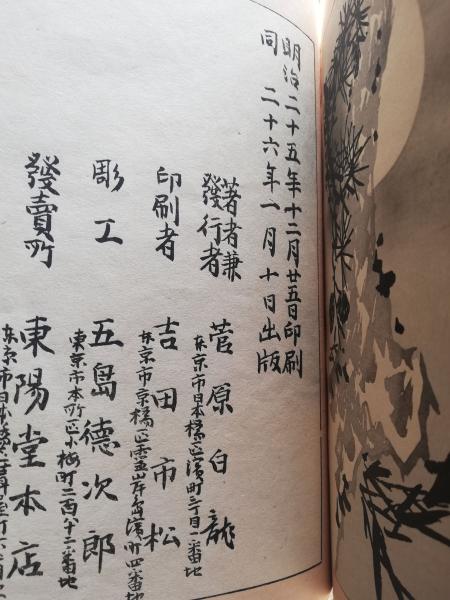 明治二十五年十二月廿五日印刷
同 二十六年一月十日出版
著者兼
發行者 菅原白龍
東京市日本橋區濱町二丁目一番地
印刷者 吉田市松
東京市京橋區靈岸島濱町四番地
彫工 五島德次郎
東京市本所區小梅町二百十二番地
發賣所 東陽堂本店
東京市日本橋區